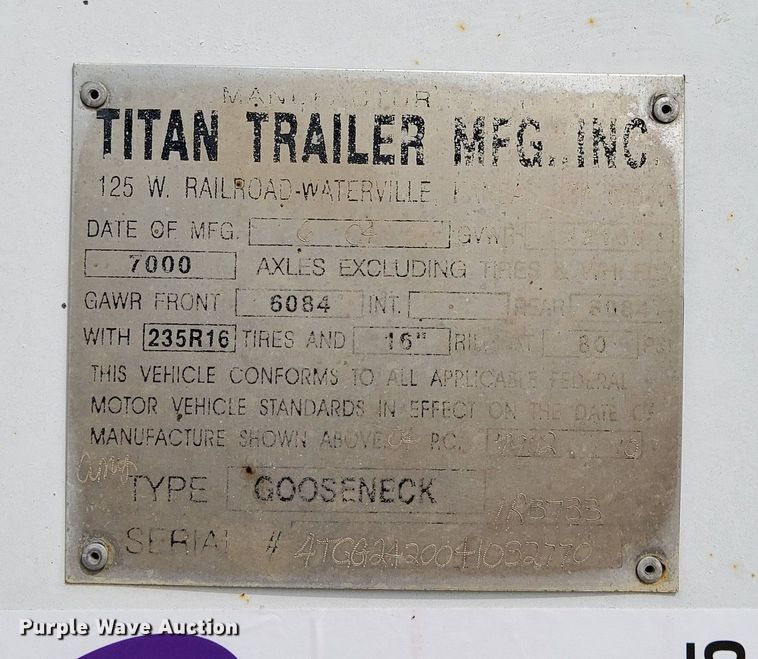 MANUFACTUR
TITAN TRAILER MFG., INC.
125 W. RAILROAD-WATERVILLE,
DATE OF MFG. 6 04 GVWR
7000 AXLES EXCLUDING TIRES & WHEELS
GAWR FRONT 6084 INT. REAR 6084
WITH 235R16 TIRES AND 16" RIMS AT 80 PSI
THIS VEHICLE CONFORMS TO ALL APPLICABLE FEDERAL
MOTOR VEHICLE STANDARDS IN EFFECT ON THE DATE OF
MANUFACTURE SHOWN ABOVE. P.C.
TYPE GOOSENECK
SERIAL #
Purple Wave Auction